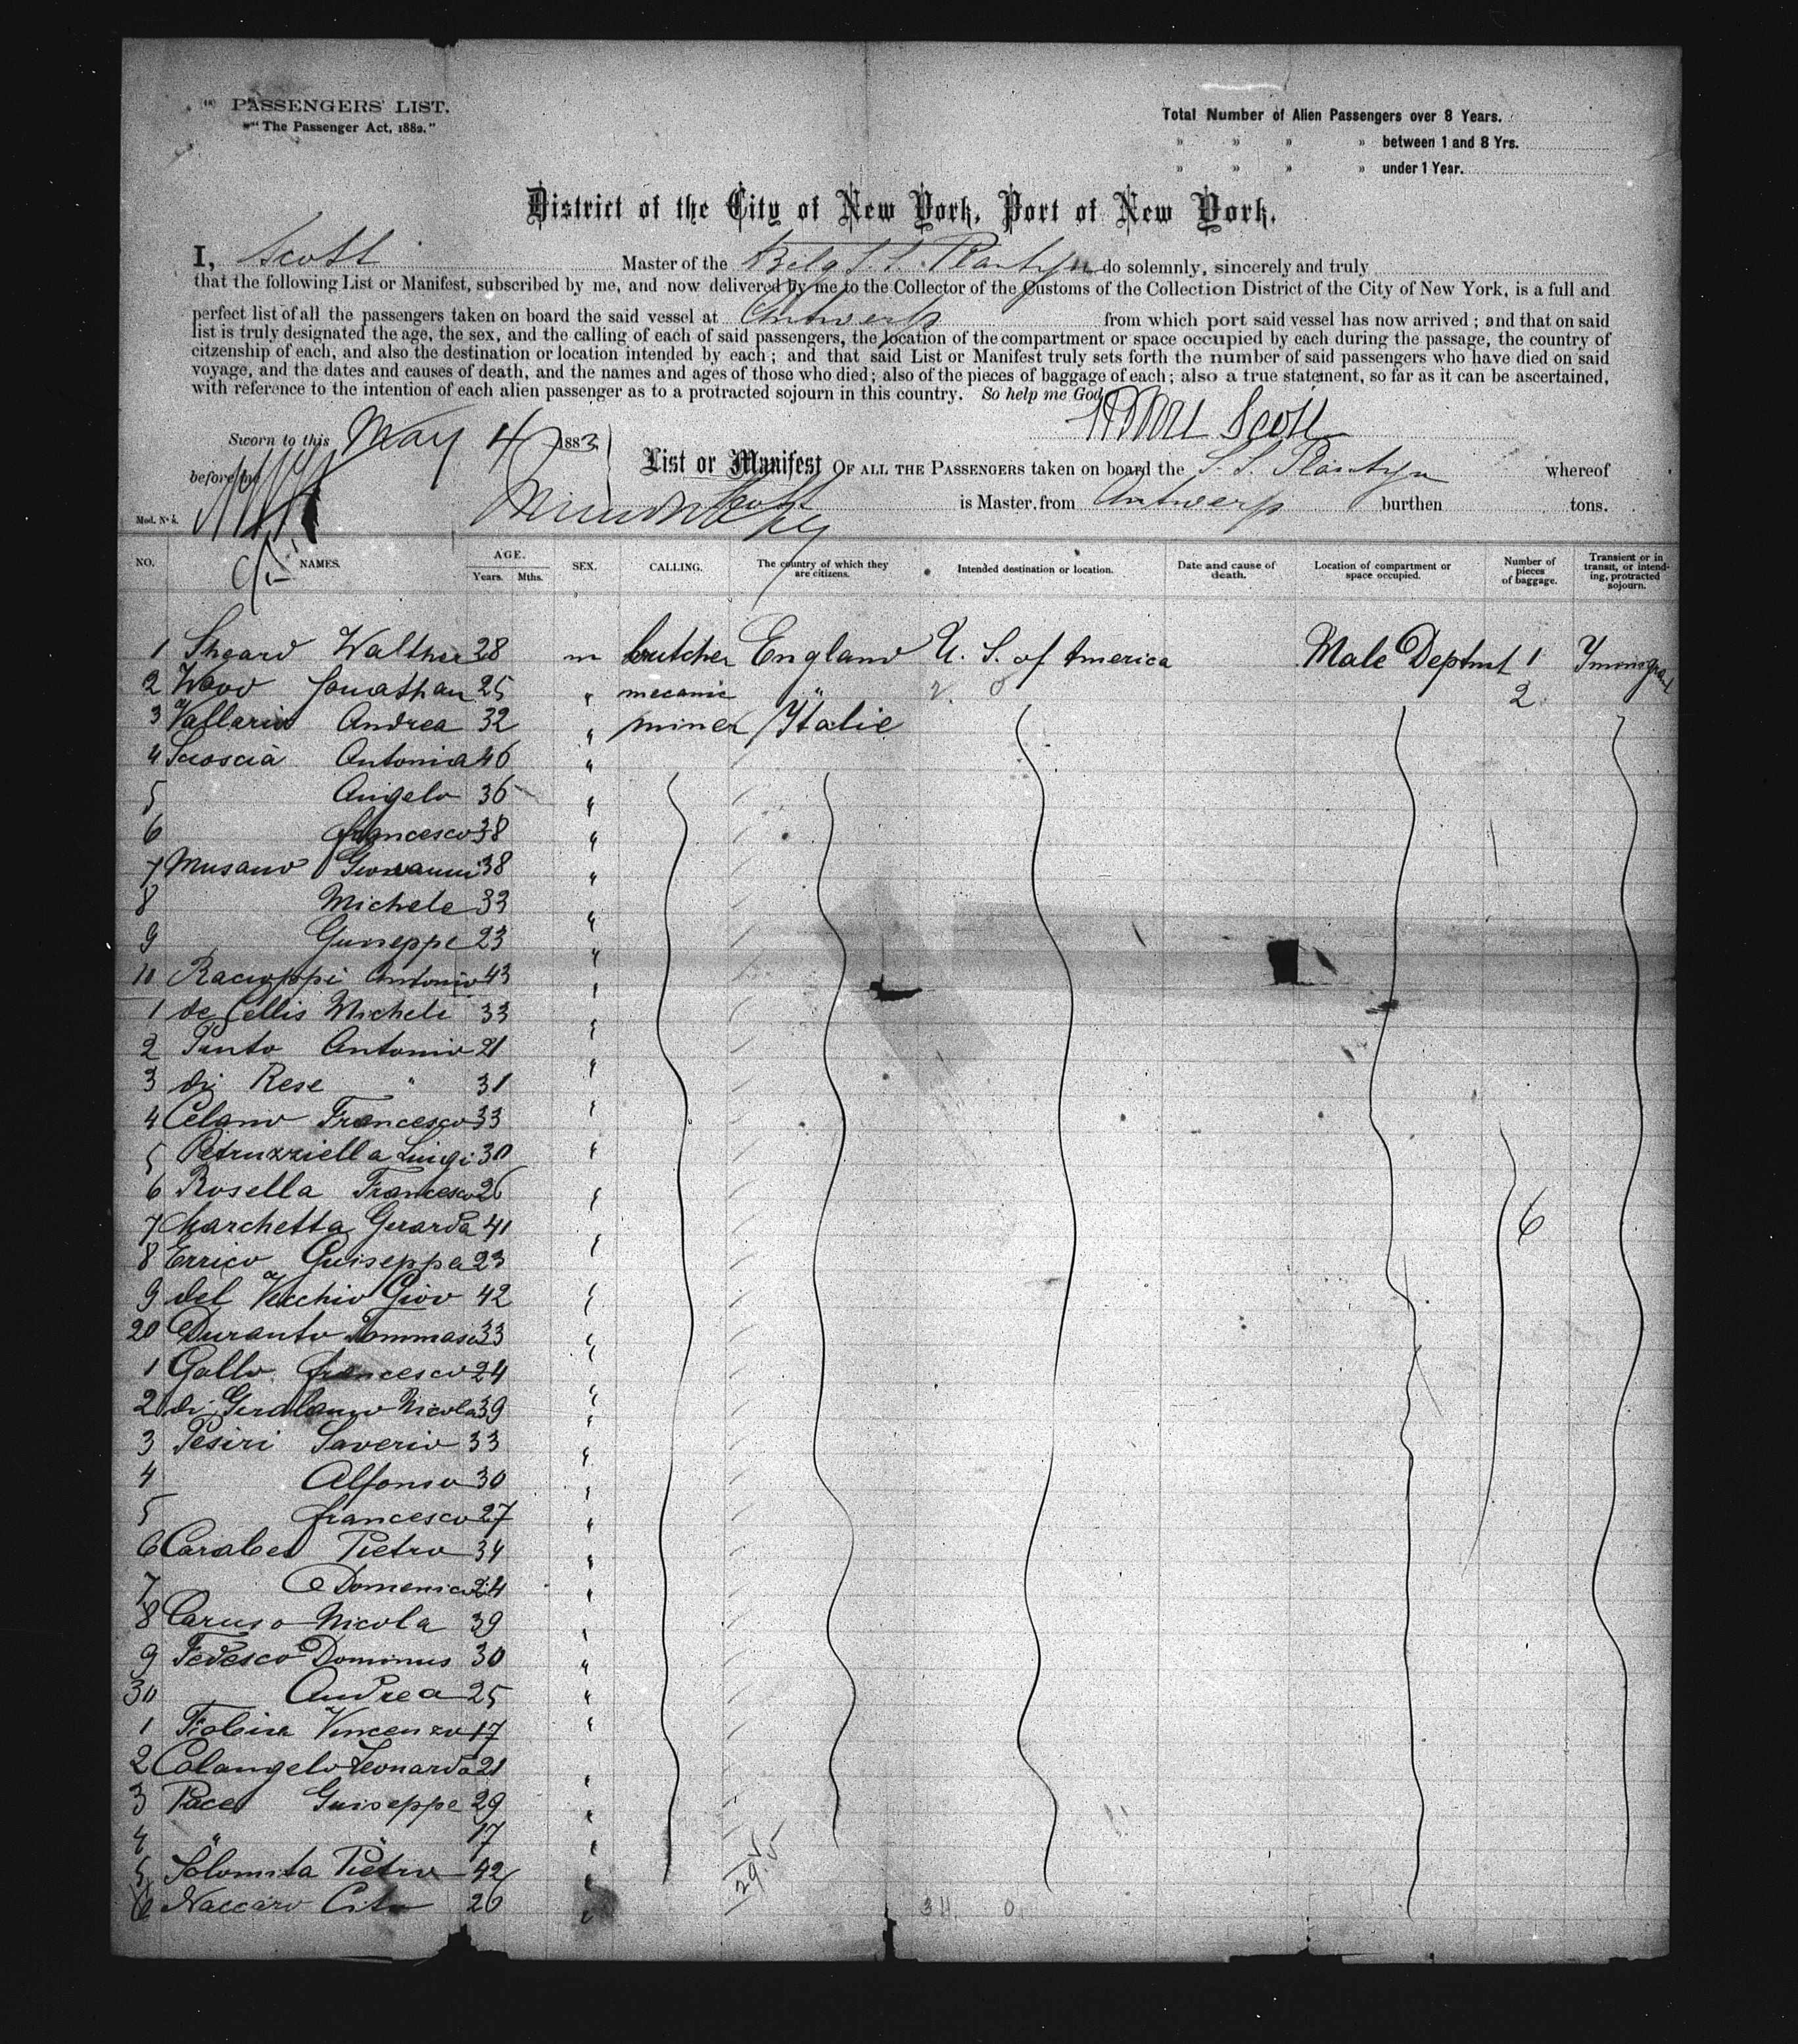 PASSENGERS' LIST.
"The Passenger Act, 1882."
Total Number of Alien Passengers over 8 Years.
" " " " between 1 and 8 Yrs.
" " " " under 1 Year.
District of the City of New York, Port of New York.
I, Scott Master of the Belg S.S. Plantyn do solemnly, sincerely and truly
that the following List or Manifest, subscribed by me, and now delivered by me to the Collector of the Customs of the Collection District of the City of New York, is a full and
perfect list of all the passengers taken on board the said vessel at Antwerp from which port said vessel has now arrived; and that on said
list is truly designated the age, the sex, and the calling of each of said passengers, the location of the compartment or space occupied by each during the passage, the country of
citzenship of each, and also the destination or location intended by each; and that said List or Manifest truly sets forth the number of said passengers who have died on said
voyage, and the dates and causes of death, and the names and ages of those who died; also of the pieces of baggage of each; also a true statement, so far as it can be ascertained,
with reference to the intention of each alien passenger as to a protracted sojourn in this country. So help me God
Scott
Sworn to this May 4 1883
before me
List or Manifest OF ALL THE PASSENGERS taken on board the S.S. Plantyn whereof
Scott is Master, from Antwerp burthen tons.
Mod. No 4.
NO. NAMES. AGE. Years. Mths. SEX. CALLING. The country of which they are citizens. Intended destination or location. Date and cause of death. Location of compartment or space occupied. Number of pieces of baggage. Transient or in transit, or intending, protracted sojourn.
1 Sheard Walther 28 m butcher England U. S. of America Male Deptmt 1 Ymmigrant
2 Wood Jonathan 25 " mecanic " 2
3 Vallario Andrea 32 " miner Italie
4 Scioscia Antonia 46 "
5 Angelo 36 "
6 francesco 38 "
7 Musano Giovanni 38 "
8 Michele 33 "
9 Guiseppe 23 "
10 Racioppi Antonio 43 "
1 de Lellis Michele 33 "
2 Pinto Antonio 21 "
3 di Rese " 31 "
4 Celano Francesco 33 "
5 Petruzziella Luigi 30 "
6 Rosella Francesco 26 "
7 Marchetta Gerarda 41 " 6
8 Errico Guiseppe 23 "
9 del Vecchio Giov 42 "
20 Duranto Tommaso 33 "
1 Gallo francesco 24 "
2 di Nicola 39 "
3 Pesiri Saverio 33 "
4 Alfonso 30 "
5 francesco 27 "
6 Pietro 34 "
7 Domenico 24 "
8 Caruso Nicola 39 "
9 Tedesco Dominus 30 "
30 Andrea 25 "
1 Vincenzo 17 "
2 Colangelo Leonarda 21 "
3 Pace Guiseppe 29 "
4 " " 17 "
5 Solomita Pietro 42 "
6 Naccaro Cito 26 "
34 0